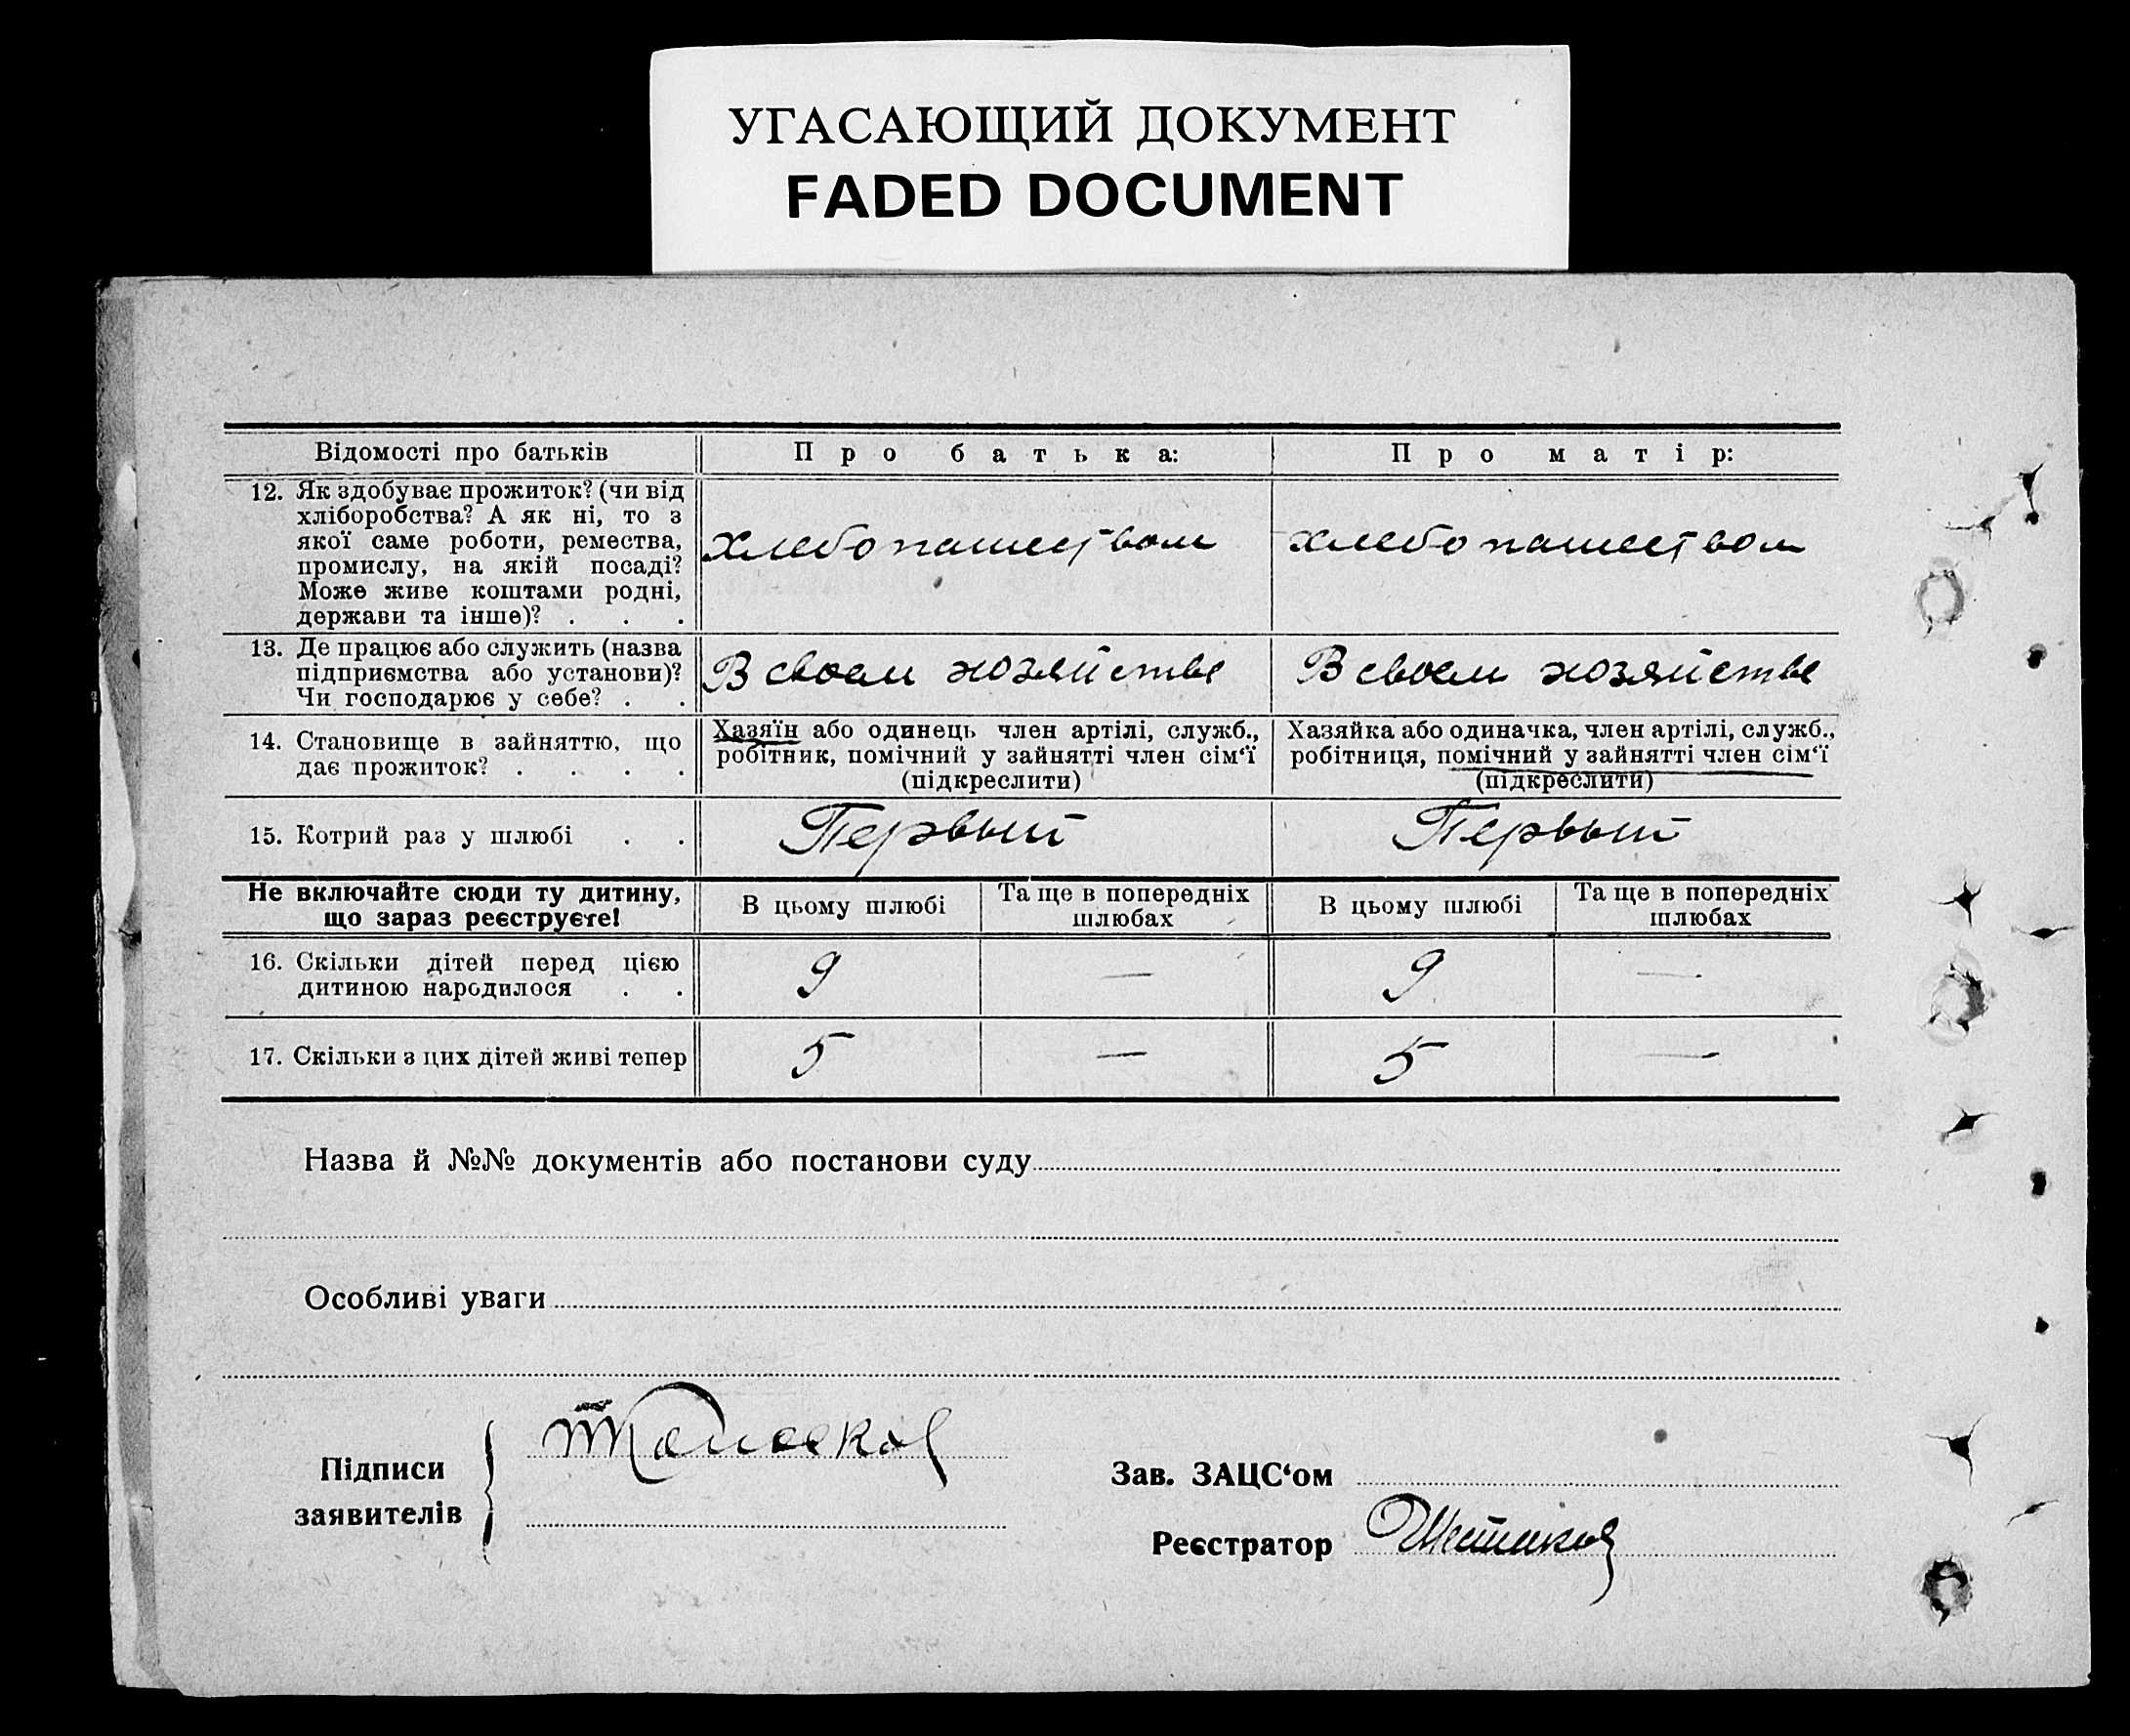 УГАСАЮЩИЙ ДОКУМЕНТ
FADED DOCUMENT
Відомості про батьків
Про батька:
Про матір:
12. Як здобуває прожиток? (чи від
хліборобства? А як ні, то з
якої саме роботи, ремества,
промислу, на якій посаді?
Може живе коштами родні,
держави та інше)? . . .
Хлебопашеством
Хлебопашеством
13. Де працює або служить (назва
підприємства або установи)?
Чи господарює у себе? . .
В своем хозяйстве
В своем хозяйстве
14. Становище в зайняттю, що
дає прожиток? . . . .
Хазяїн або одинець член артілі, служб.,
робітник, помічний у зайнятті член сім‘ї
(підкреслити)
Хазяйка або одиначка, член артілі, служб.,
робітниця, помічний у зайнятті член сім‘ї
(підкреслити)
15. Котрий раз у шлюбі . .
Первый
Первый
Не включайте сюди ту дитину,
що зараз реєструєте!
В цьому шлюбі
Та ще в попередніх
шлюбах
В цьому шлюбі
Та ще в попередніх
шлюбах
16. Скільки дітей перед цією
дитиною народилося . .
9
—
9
—
17. Скільки з цих дітей живі тепер
5
—
5
—
Назва й №№ документів або постанови суду
Особливі уваги
Підписи
заявителів
Зав. ЗАЦС‘ом
Реєстратор